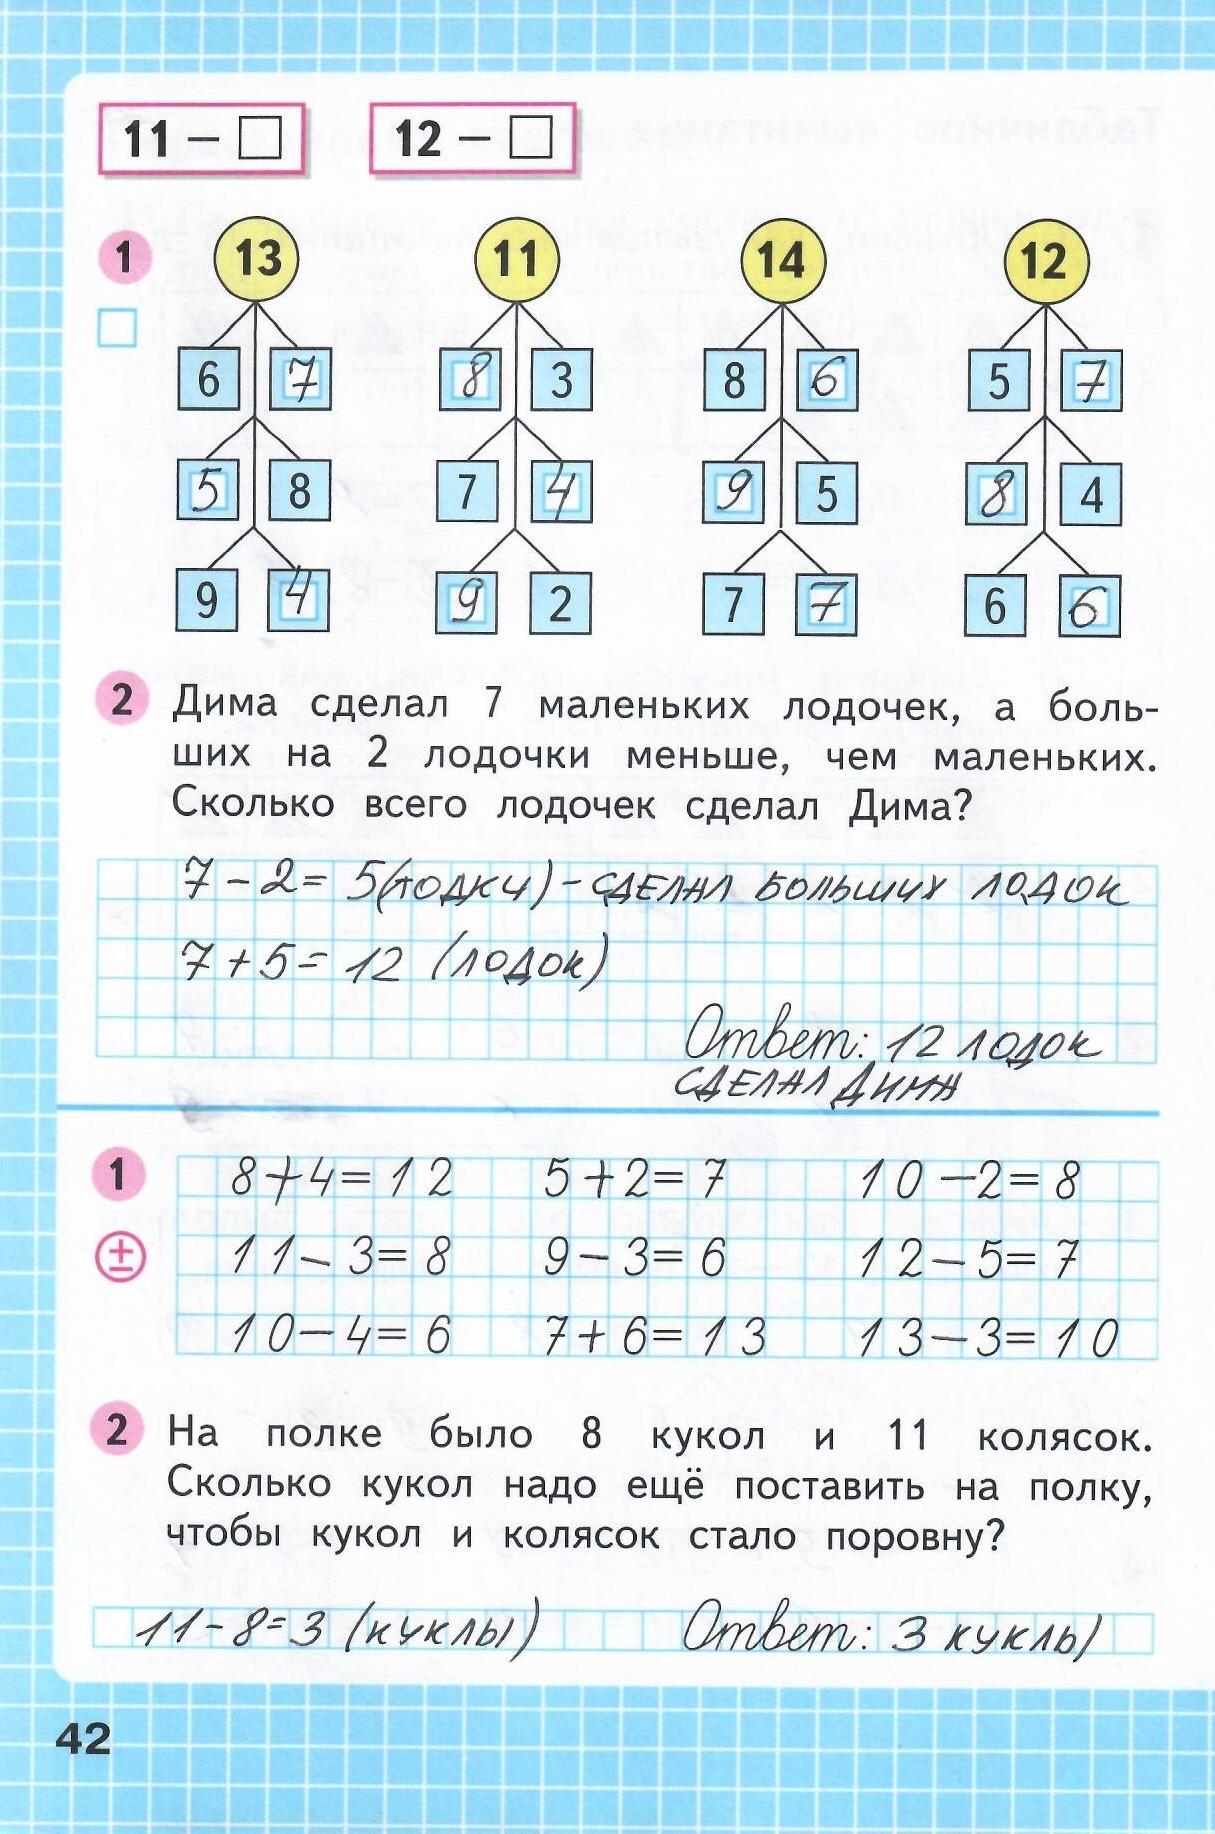 11 – □ 12 – □
1 13 11 14 12
6 7 8 3 8 6 5 7
5 8 7 4 9 5 8 4
9 4 9 2 7 7 6 6
2 Дима сделал 7 маленьких лодочек, а боль-
ших на 2 лодочки меньше, чем маленьких.
Сколько всего лодочек сделал Дима?
7 – 2 = 5 (лодки) – сделал больших лодок
7 + 5 = 12 (лодок)
Ответ: 12 лодок
сделал Дима
1 8+4=12 5+2=7 10–2=8
± 11–3=8 9–3=6 12–5=7
10–4=6 7+6=13 13–3=10
2 На полке было 8 кукол и 11 колясок.
Сколько кукол надо ещё поставить на полку,
чтобы кукол и колясок стало поровну?
11–8=3 (куклы) Ответ: 3 куклы
42